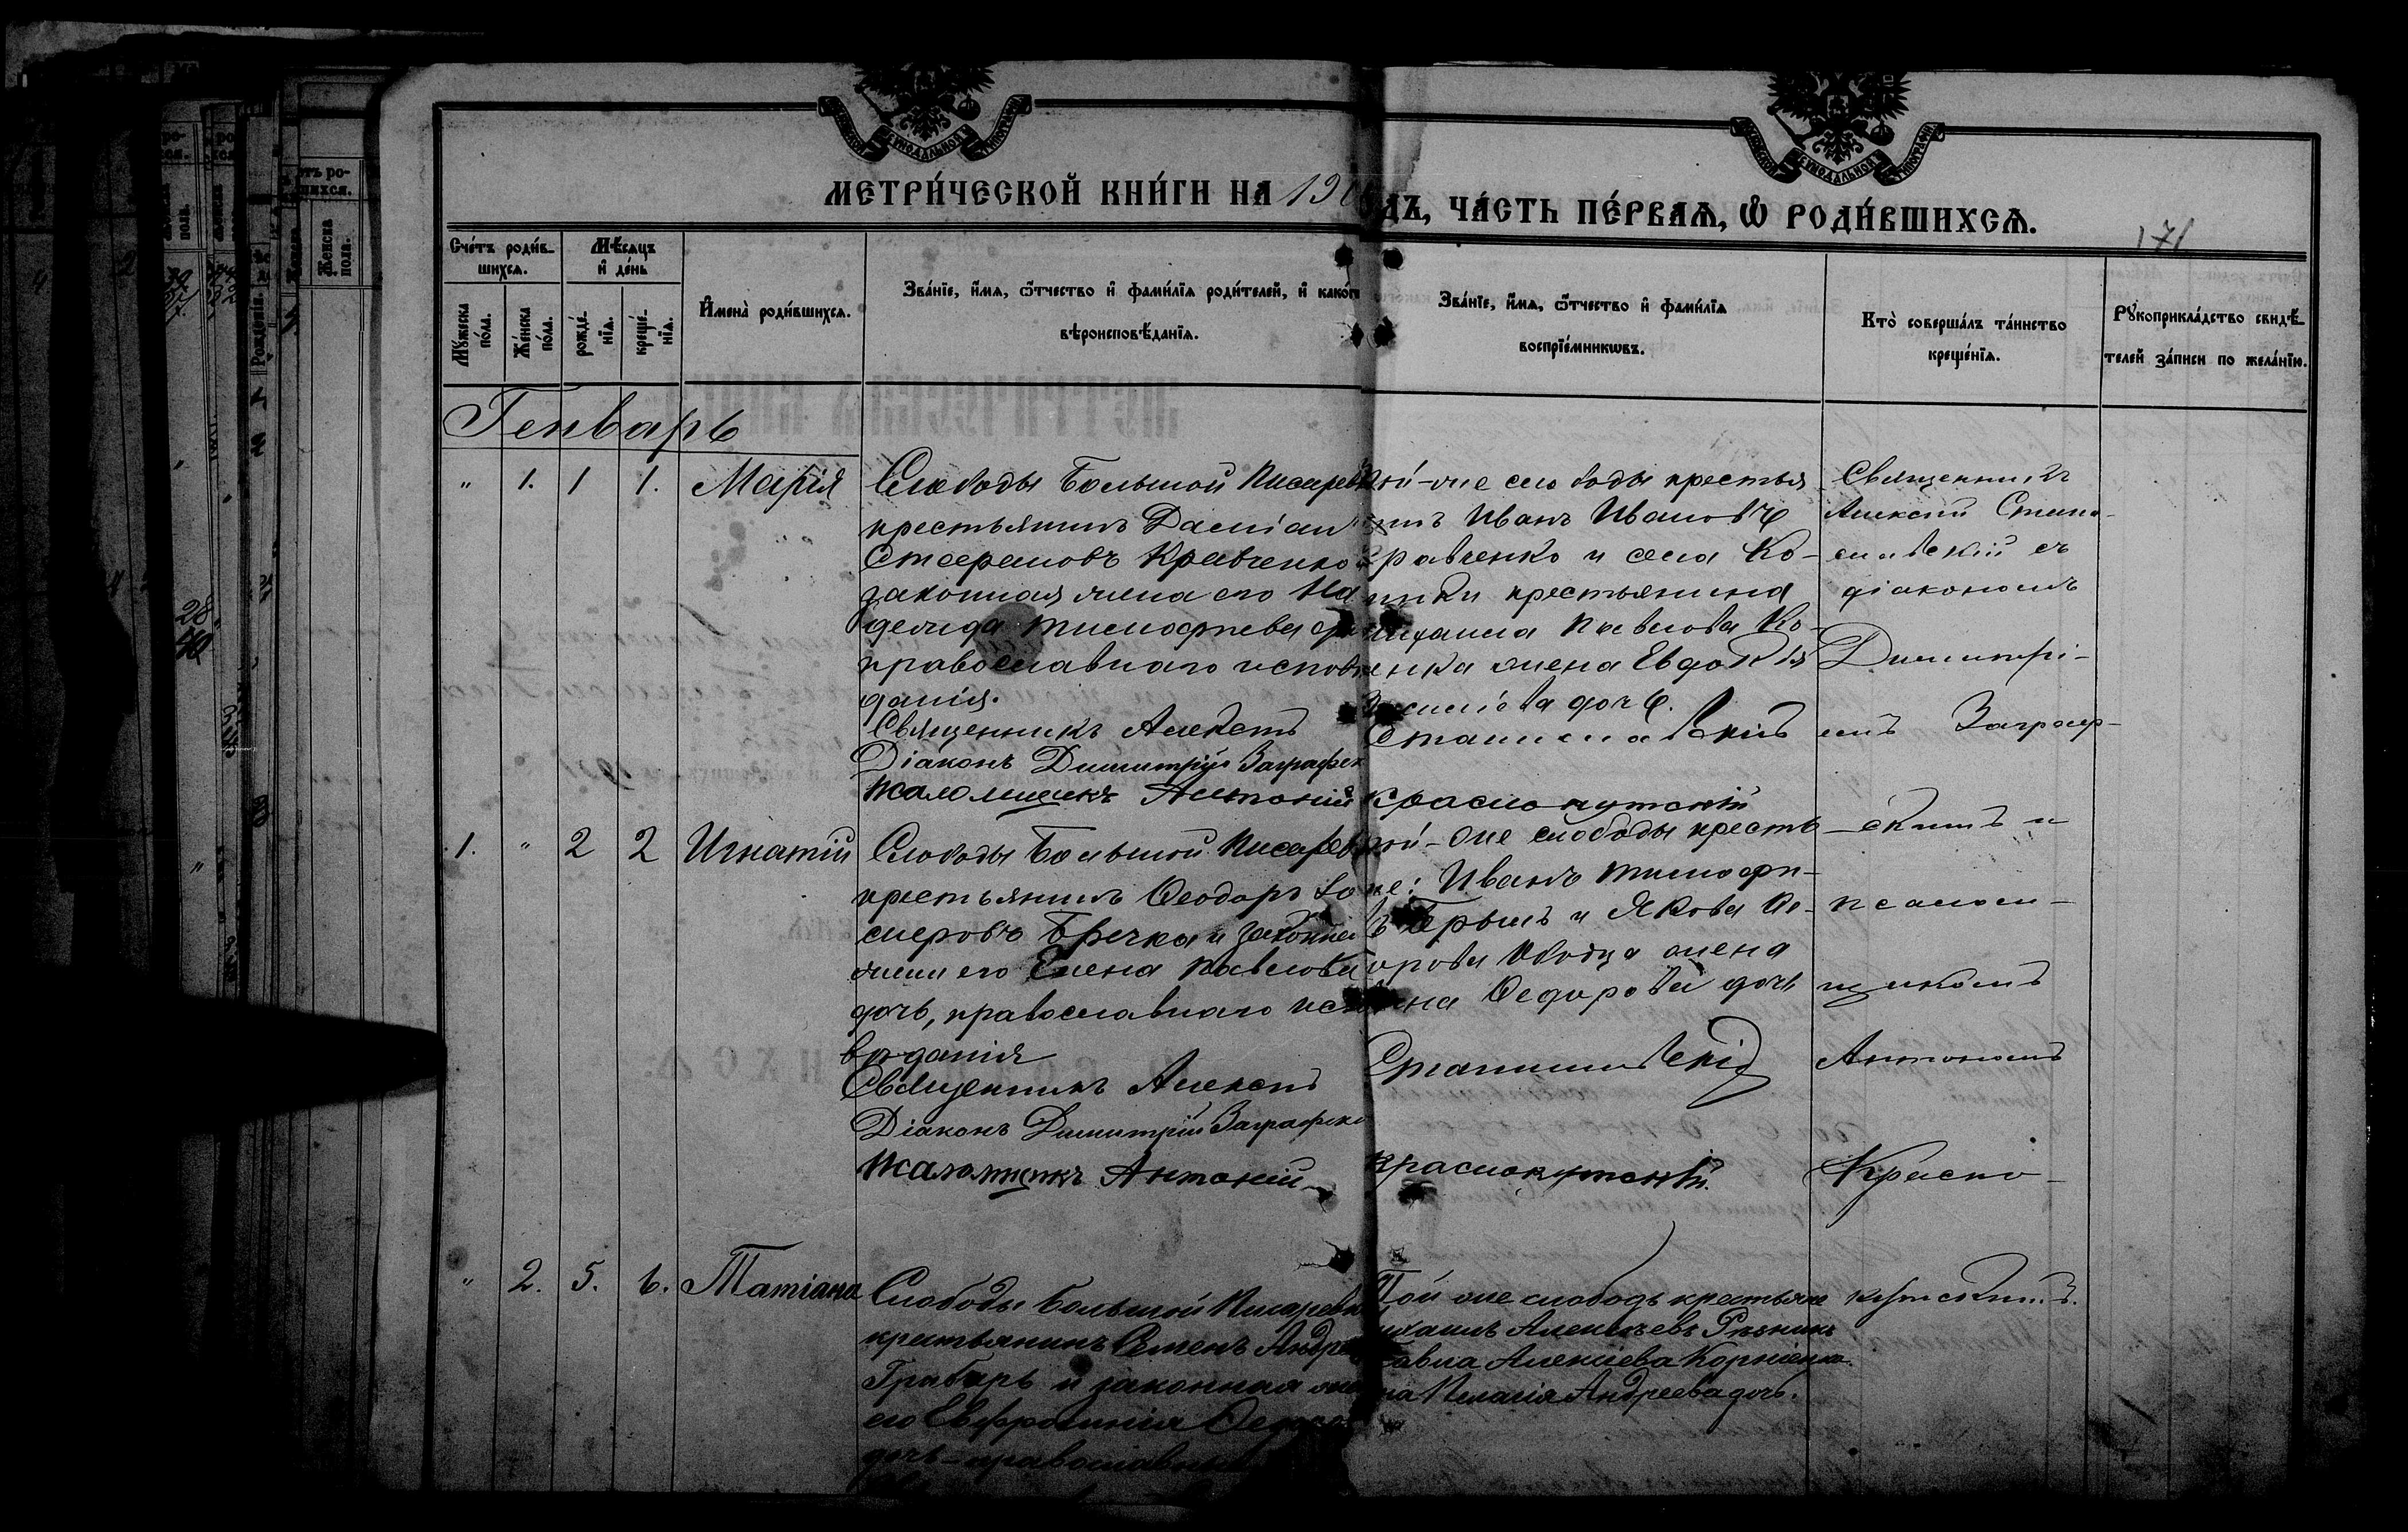 МЕТРИ́ЧЕСКОЙ КНИ́ГИ НА 190
ДЪ, ЧА́СТЬ ПЕ́РВАѦ, Ѿ РОДИ́ВШИХСѦ.
171
Сче́тъ роди́в-
шихсѧ.
Мѣ́сяцъ
и҆ де́нь
Мꙋ́жеска
по́ла.
Же́нска
по́ла.
рожде́-
нїѧ.
креще́-
нїѧ.
И҆мена̀ роди́вшихсѧ.
Зва́нїе, и҆́мѧ, ѻ҆́тчество и҆ фами́лїѧ роди́телей, и҆ како́гѡ
вѣроисповѣ́данїѧ.
Зва́нїе, и҆́мѧ, ѻ҆́тчество и҆ фами́лїѧ
воспрїе́мникѡвъ.
Кто̀ соверша́лъ та́инство
креще́нїѧ.
Рꙋкоприкла́дство свидѣ́-
телей за́писи по жела́нїю.
Генварь
" 1. 1 1. Марія
Слободы Большой Писаревк
крестьянинъ Даміан
Стефановъ Кравченко и
законная жена его На
дежда Тимофеева
православнаго исповѣ
данія.
Священникъ Алексѣй
Діаконъ Димитрій Заграфск
Псаломщикъ Антоній
той-же слободы крестья
нинъ Иванъ Ивановъ
Кравченко и села Ко-
крестьянина
Михаила Павлова Ко-
енка жена Евдокія
дочь.
Станиславскій
Краснокутскій
Священникъ
Алексій Стани-
славскій съ
діакономъ
Димитрі-
емъ Заграф-
скимъ и
псалом-
щикомъ
Антоніемъ
Красно-
кутскимъ.
1. " 2 2 Игнатій
Слободы Большой Писаревк
крестьянинъ Ѳеодоръ
Бречка и законная
жена его Елена Павлова
дочь, православнаго испо
вѣданія
Священникъ Алексѣй
Діаконъ Димитрій Заграфск
Псаломщикъ Антоній
той-же слободы кресть
не: Иванъ Тимофе-
въ и Якова
жена
Ѳедорова дочь
Станиславскій
Краснокутскій.
" 2. 5. 6. Татіана
Слободы Большой Писаревк
крестьянинъ Семенъ Андре
Грабарь и законная же
его Евфросинія
дочь-православна
Той же слободы крестьяне
Михаилъ Алексѣевъ Рѣзникъ
Павла Алексѣева Корніенко
на Пелагія Андреева дочь.